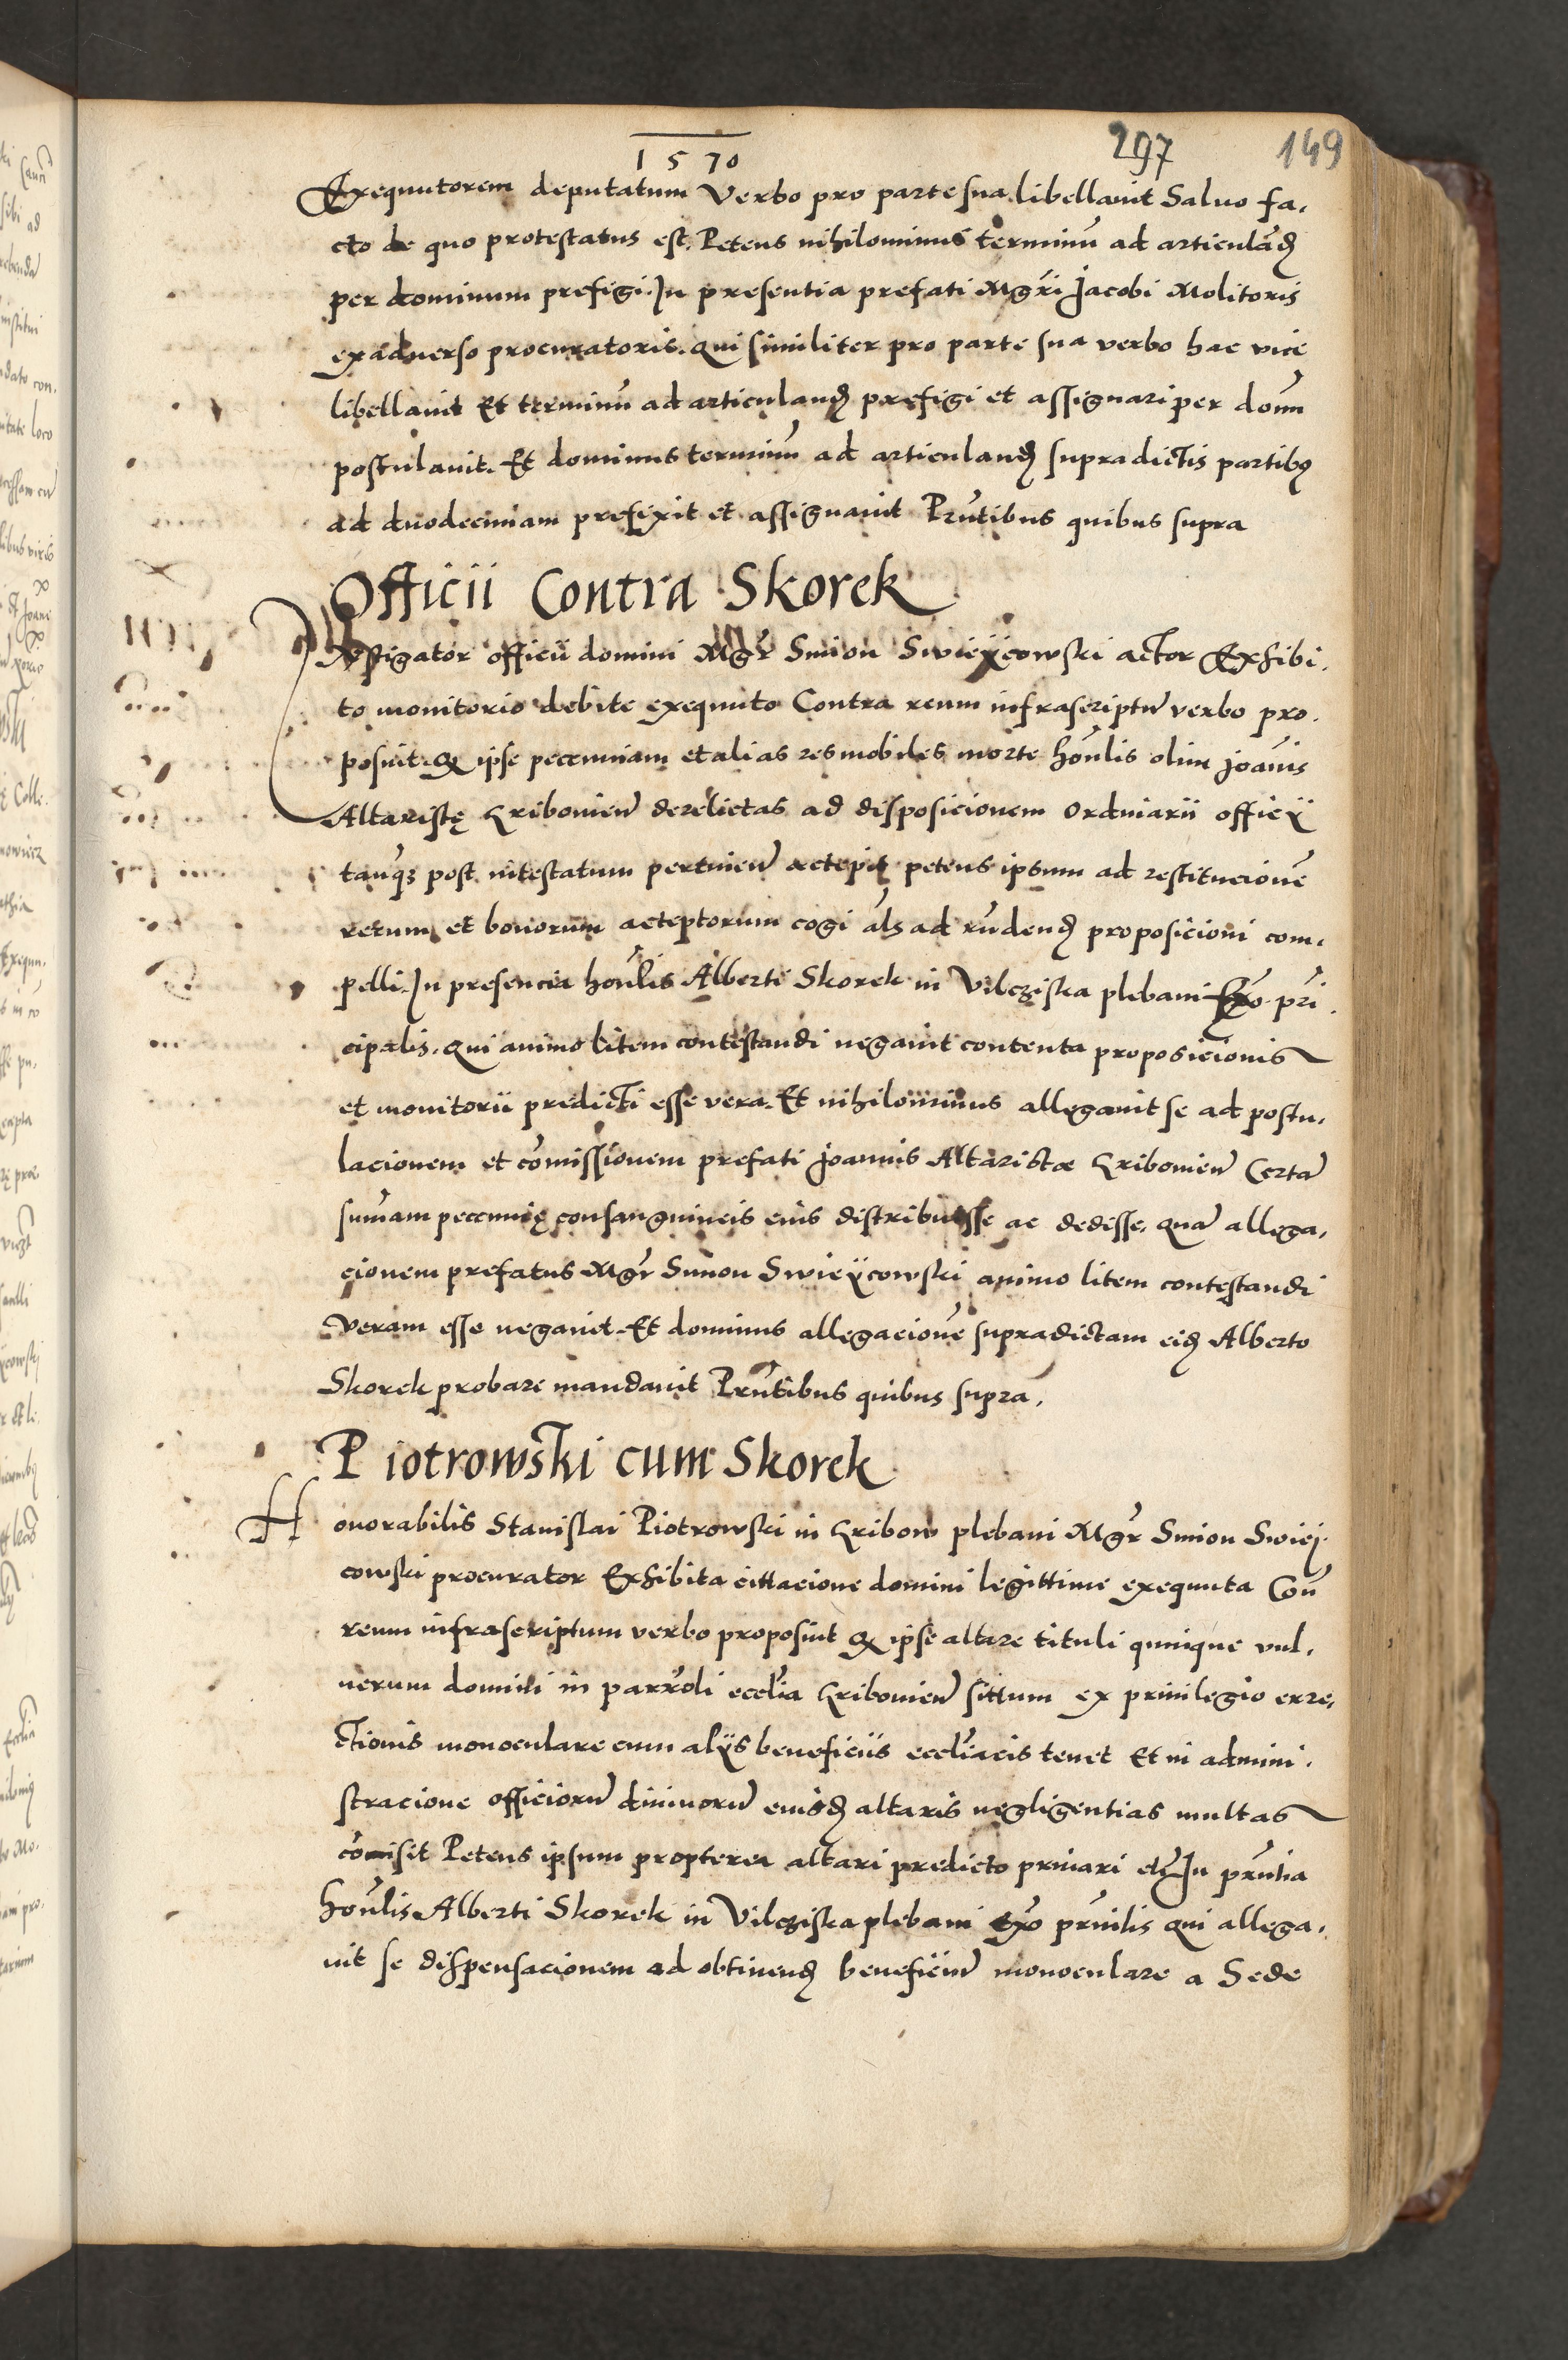 1570
297 149
Exequutorem deputatum Verbo pro parte sua libellauit Saluo fa,
cto de quo protestatus est. Petens nihilominus terminū ad articulād̄
per dominum prefigi. In presentia prefati Mgr̄i Jacobi Molitoris
exaduerso procuratoris. qui similiter pro parte sua verbo hac vice
libellauit Et terminū ad articuland̄ prefigi et assignari per domn̄
postulauit. Et dominus terminū ad articuland̄ supradictis partibꝫ
ad duodecimam prefixit et assignauit Prn̄tibus quibus supra
Officii Contra Skorek
Instigator officii domini Mgr̄ Simon Swieÿcowski actor Exhibi,
to monitorio debite exequuto Contra reum infrascriptū verbo pro,
posuit. Qꝫ ipse pecuniam et alias res mobiles morte hon̄lis olim Joan̄is
Altaristę Gribouien̄ derelictas ad disposicionem Ordinarii officÿ
tanqꝫ post intestatum pertinen̄ accepit petens ipsum ad restitucionē
rerum et bonorum acceptorum cogi al̄s ad rn̄dend̄ proposicioni com,
pelli. In presencia hon̄lis Alberti Skorek in Vilcziska plebani Exº prī,
cipalis. qui animo litem contestandi negauit contenta proposicionis
et monitorii predicti esse vera. Et nihilominus allegauit se ad postu,
lacionem et cōmissionem prefati Joannis Altaristae Gribouien̄ Certā
sum̄am pecunię consanguineis eius distribuisse ac dedisse, quā allega,
cionem prefatus Mgr̄ Simon Swieÿcowski animo litem contestandi
veram esse negauit. Et dominus allegacionē supradictam eid̄ Alberto
Skorek probare mandauit Prn̄tibus quibus supra,
Piotrowski cum Skorek
Honorabilis Stanislai Piotrowski in Gribow plebani Mgr̄ Simon Swiej,
cowski procurator Exhibita cittacione domini legittime exequuta Con̄
reum infrascriptum verbo proposuit Qꝫ ipse altare tituli quinque vul,
nerum domini in parrōli eccl̄ia Gribouien̄ sittum ex priuilegio erre,
ctionis monoculare cum alÿs beneficiis eccl̄iacis tenet Et in admini,
stracione officiorū diuinorū eiusd̄ altaris negligentias multas
cōmisit Petens ipsum propterea altari predicto priuari etc̄ In prn̄tia
hon̄lis Alberti Skorek in Vilcziska plebani exº prn̄ilis qui allega,
uit se dispensacionem ad obtinend̄ beneficiū monoculare a Sede